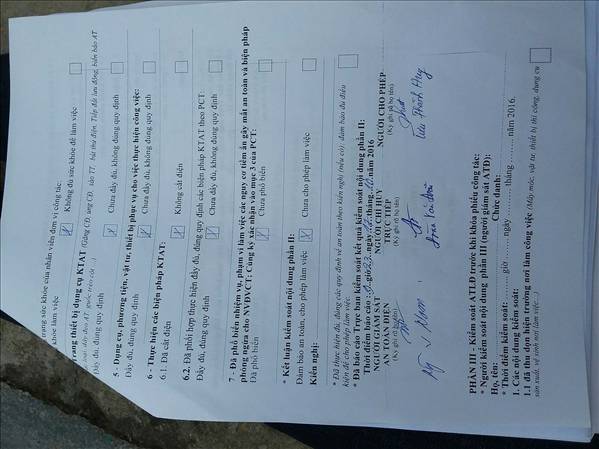 trạng sức khỏe của nhân viên đơn vị công tác:
khỏe làm việc
Không đủ sức khỏe để làm việc
trang thiết bị dụng cụ KTAT
Đầy đủ, đúng quy định
Chưa đầy đủ, không đúng quy định
5 - Dụng cụ, phương tiện, vật tư, thiết bị phục vụ cho việc thực hiện công việc:
Đầy đủ, đúng quy định
Chưa đầy đủ, không đúng quy định
6 - Thực hiện các biện pháp KTAT:
6.1. Đã cắt điện
Không cắt điện
6.2. Đã phối hợp thực hiện đầy đủ, đúng quy định các biện pháp KTAT theo PCT:
Đầy đủ, đúng quy định
Chưa đầy đủ, không đúng quy định
7 - Đã phổ biến nhiệm vụ, phạm vi làm việc các nguy cơ tiềm ẩn gây mất an toàn và biện pháp
phòng ngừa cho NVĐVCT; Cùng ký xác nhận vào mục 3 của PCT:
Đã phổ biến
Chưa phổ biến
* Kết luận kiểm soát nội dung phần II:
Đảm bảo an toàn, cho phép làm việc
Chưa cho phép làm việc
Kiến nghị:
* Đã thực hiện đủ, đúng các quy định về an toàn theo kiến nghị (nếu có); đảm bảo đủ điều
kiện để cho phép làm việc.
* Đã báo cáo Trực ban kiểm soát kết quả kiểm soát nội dung phần II:
Thời điểm báo cáo: giờ ngày tháng năm 2016
NGƯỜI GIÁM SÁT
AN TOÀN ĐIỆN
(Ký ghi rõ họ tên)
NGƯỜI CHỈ HUY
TRỰC TIẾP
(Ký ghi rõ họ tên)
NGƯỜI CHO PHÉP
(Ký ghi rõ họ tên)
PHẦN III - Kiểm soát ATLĐ trước khi khóa phiếu công tác:
* Người kiểm soát nội dung phần III (người giám sát ATĐ):
Họ, tên: Chức danh:
* Thời điểm kiểm soát: ......... giờ ......... ngày ......... tháng ......... năm 2016.
1. Các nội dung kiểm soát:
1.1 đã thu dọn hiện trường nơi làm công việc (Máy móc, vật tư, thiết bị thi công, dụng cụ
sản xuất, vệ sinh nơi làm việc...)